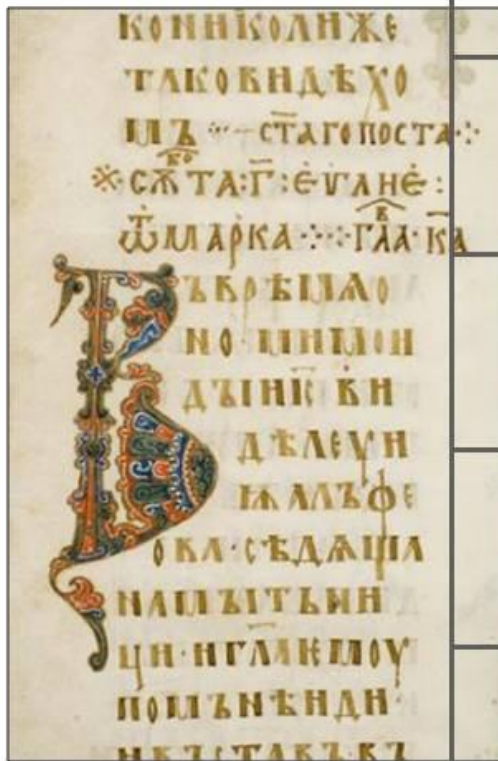 КОНИКОЛИЖЕ
ТАКОВИДѢХО
МЪ СТАГОПОСТА
СѪТА:Г:ЕѴАНЕ:
ѾМАРКА ГЛА КА
ВЪВРѢМѦО
НО МИМОИ
ДЫИІС ВИ
ДѢЛЕУИ
ИꙖАЛЪФЕ
ОВА·СѢДѦЩА
НАМЪІТЬНИ
ЦИ·ИГЛАѤМОУ
ПОМЪНѢИДИ·
ИВЪСТАВЪ·В̇Ъ